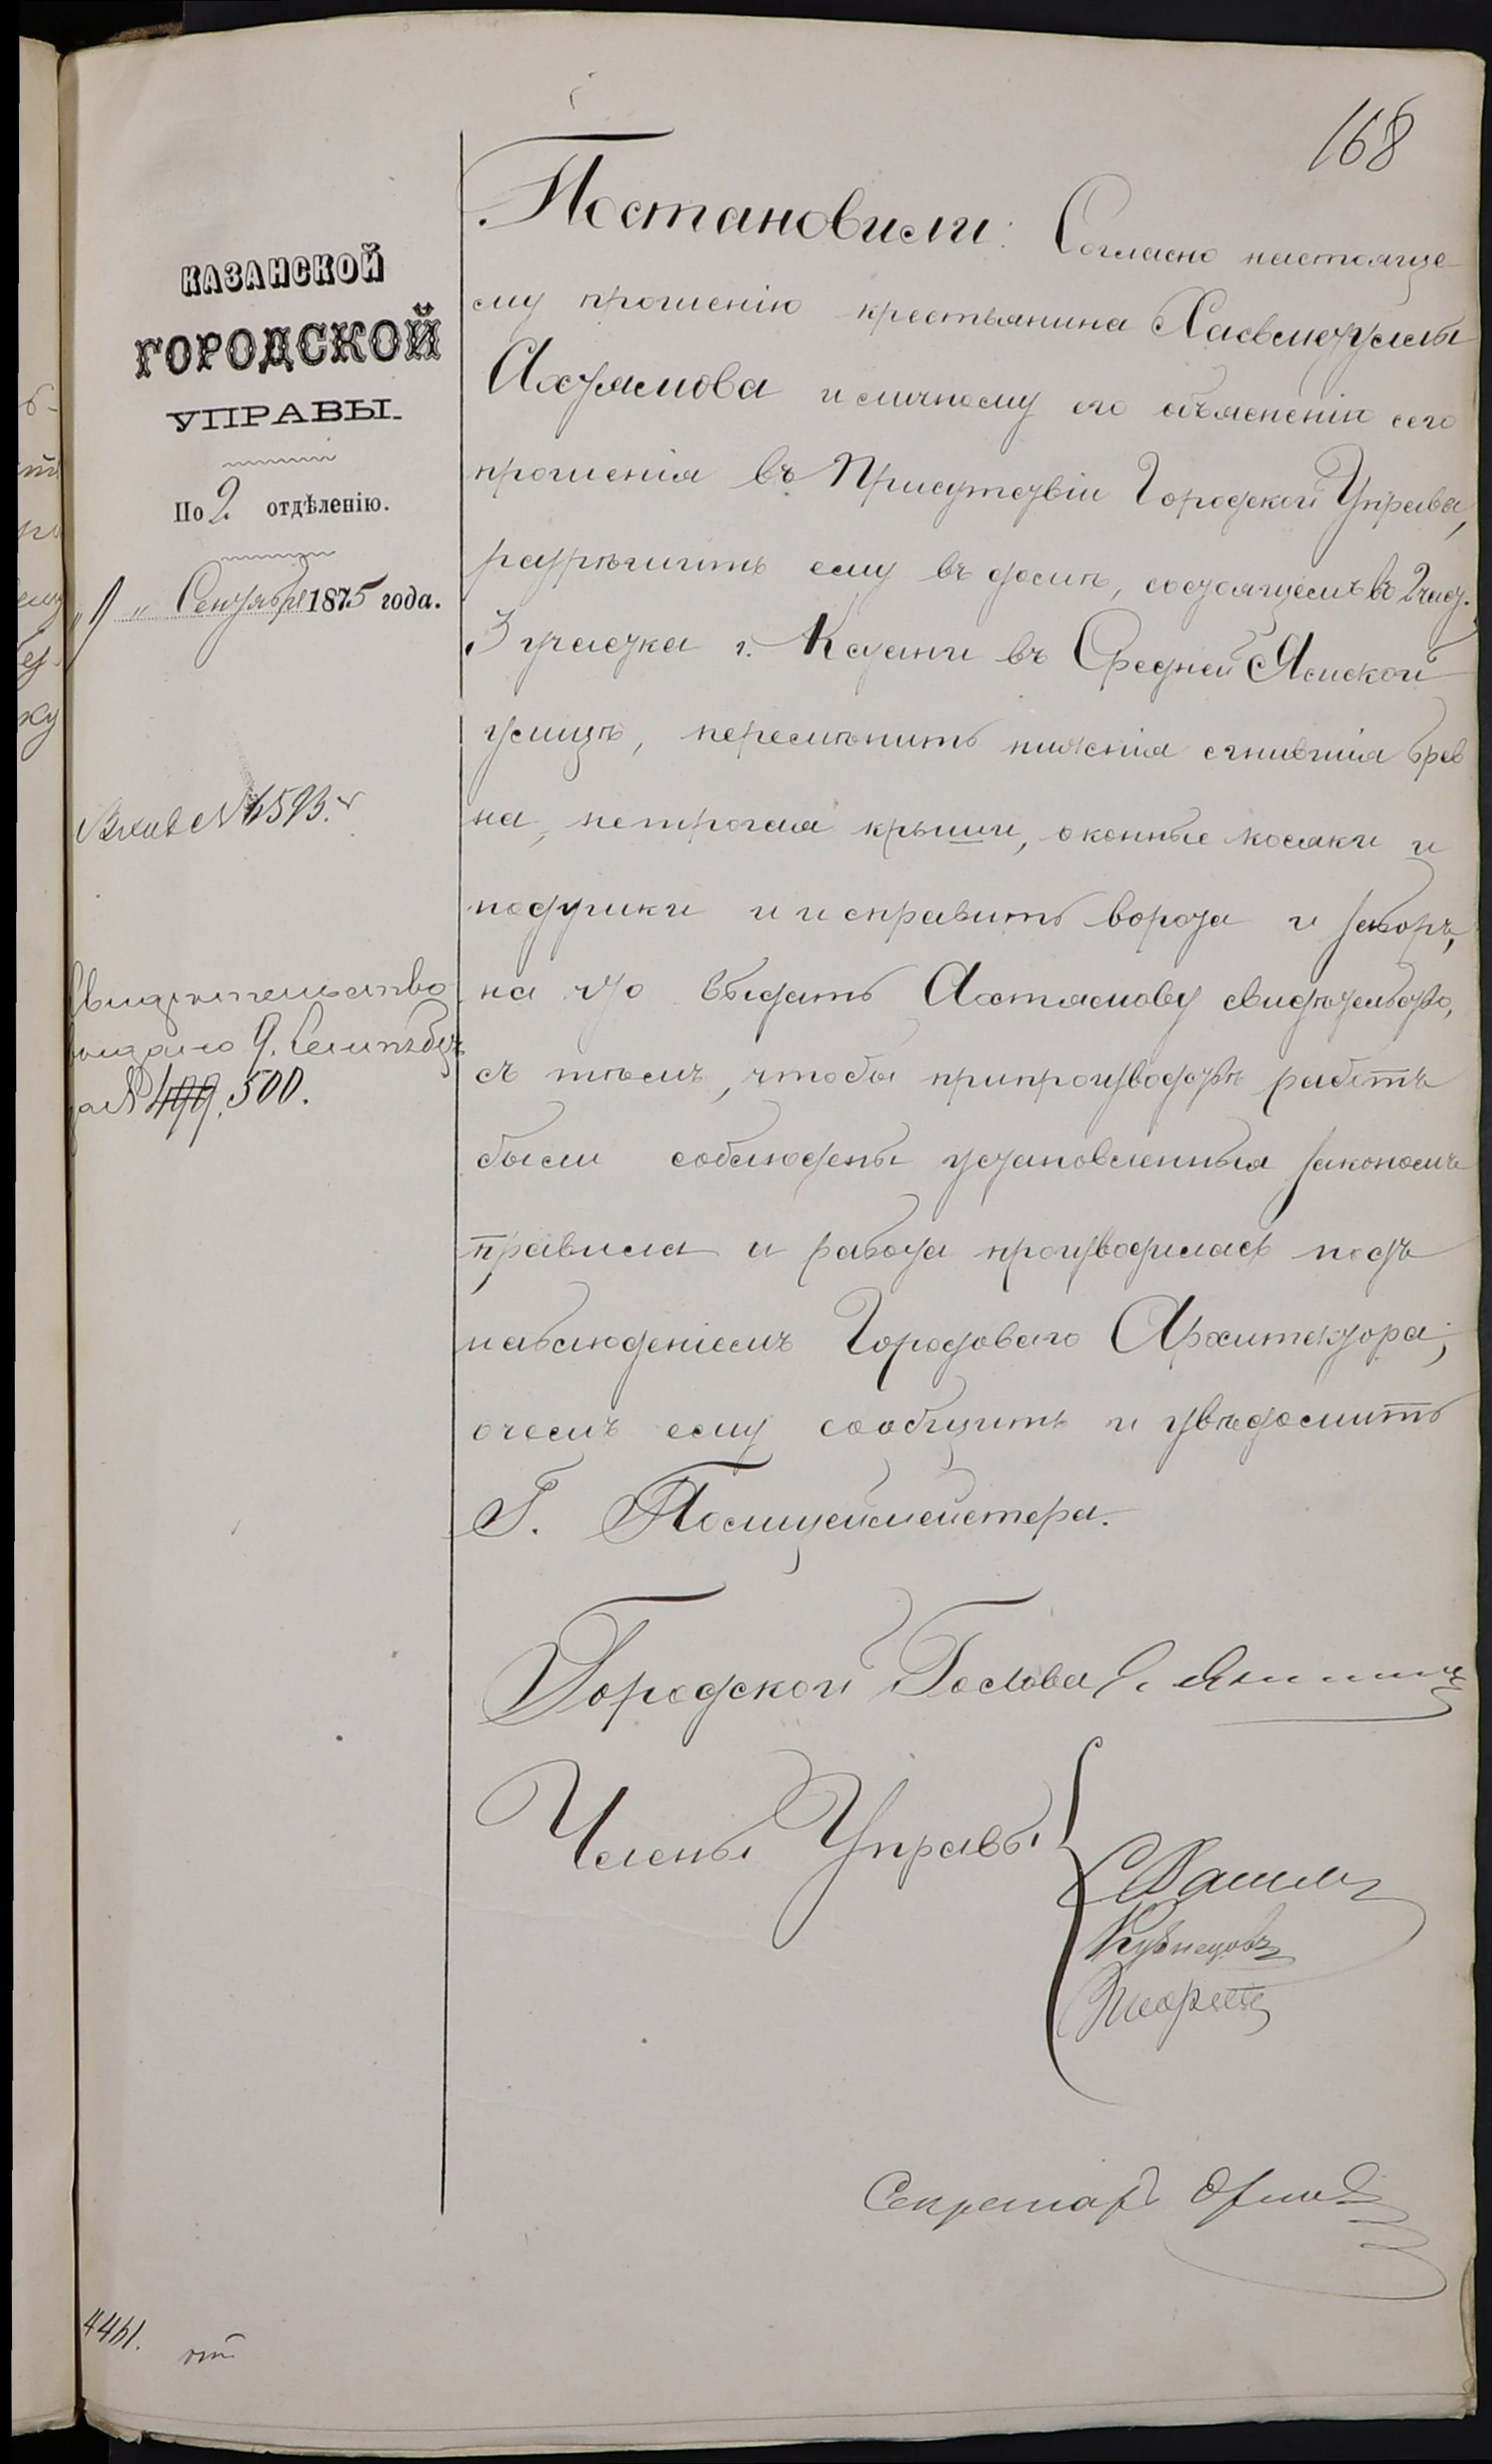 168
КАЗАНСКОЙ
ГОРОДСКОЙ
УПРАВЫ.
По 2 отдѣленію.
„1„ Сентября 1875 года.
№ 6593.
Свидѣтельство
выдано 9. Сентября
за № 499. 500.
Постановили: Согласно настояще
му прошенію крестьянина
Ахтямова и личному его объясненію сего
прошенія въ Присутствіи Городской Управы,
разрѣшить ему въ домѣ, состоящемъ въ 2 част.
3 участка г. Казани въ Средней Ямской
улицѣ, перемѣнить нижнія сгнившія брев
на, нетрогая крыши, оконные косяки и
подушки и исправить ворота и заборъ,
на что выдать Ахтямову свидѣтельство,
съ тѣмъ, чтобы припроизводствѣ работъ
были соблюдены установленныя закономъ
правила и работа производилась подъ
наблюденіемъ Городоваго Архитектора;
очемъ ему сообщить и увѣдомить
Г. Полицеймейстера.
Городской Голова Э. Янишъ
Члены Управы
Кузнецовъ
Секретарь
4461.